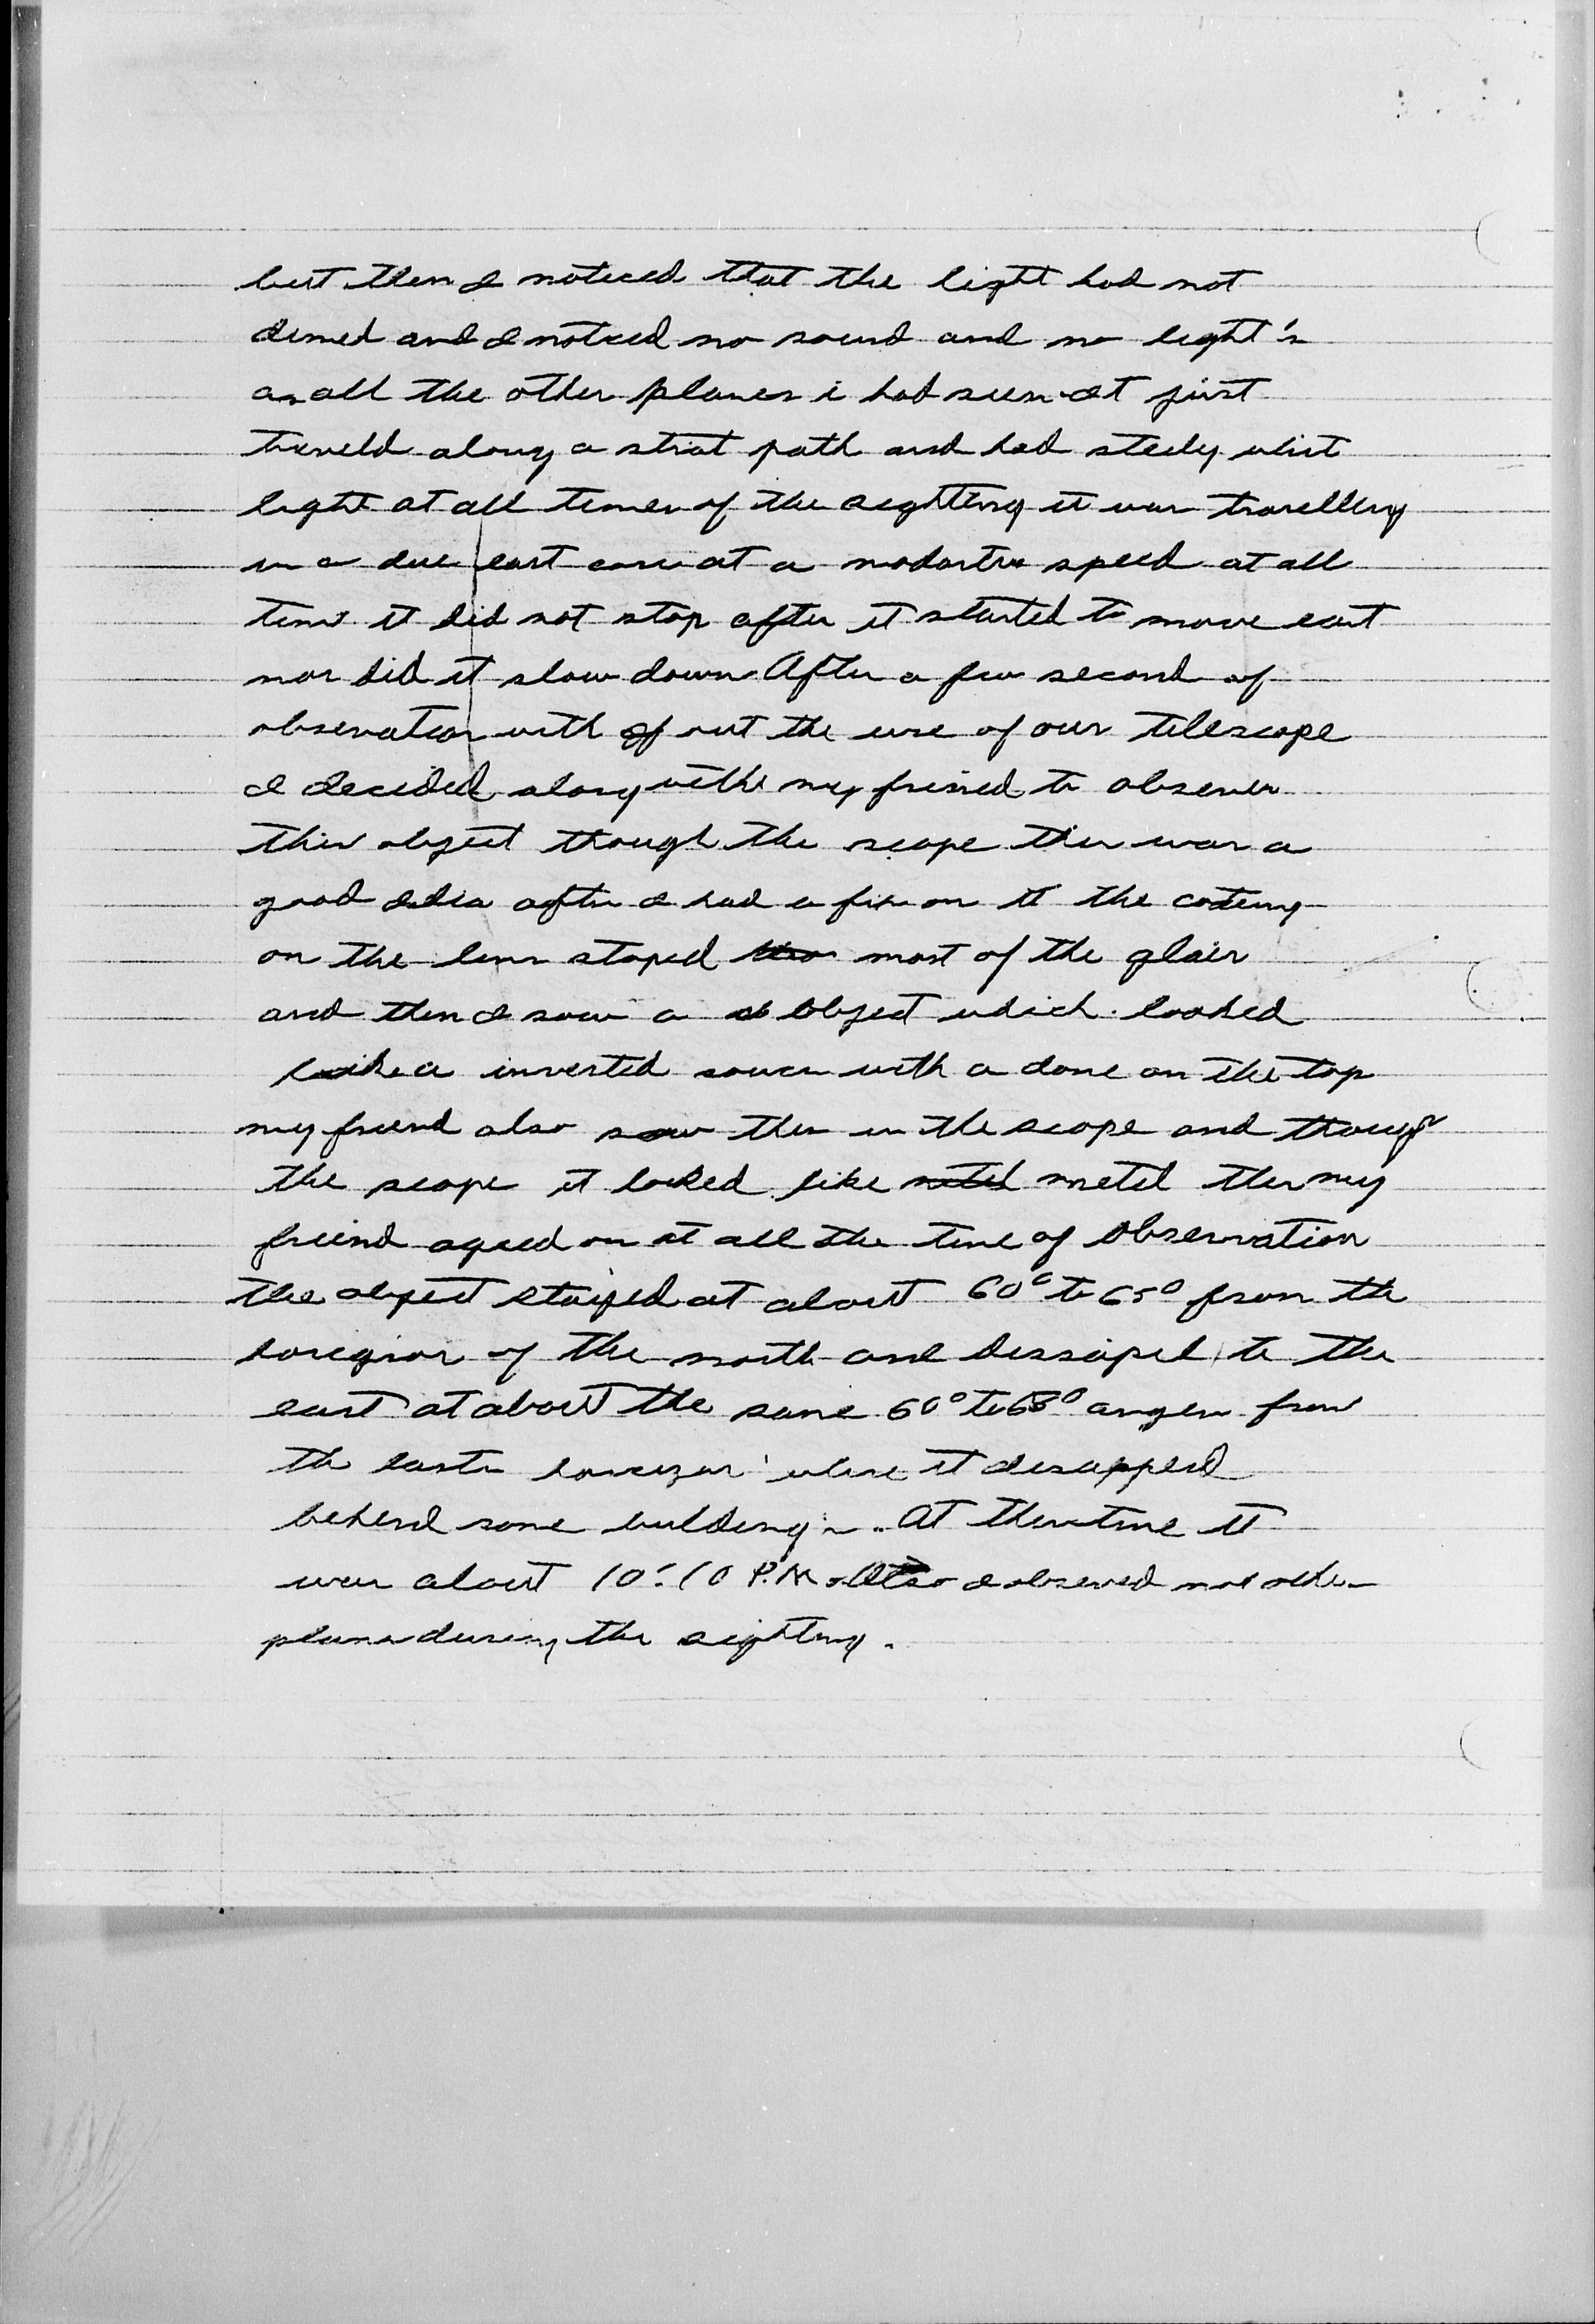 but then I noticed that the light had not
dimed and I noticed no sound and no light's
as all the other planes i had seen at first
traveld along a strat path and had steely whit
light at all times of the sighting it was travelling
in a due east corse at a modartre speed at all
time it did not stop after it started to move east
nor did it slow down After a few second of
observation with out the use of our telescope
I decided along withe my freind to observe
this object though the scope this was a
good idia after I had a fix on it the coteing
on the lens stoped most of the glair
and then I saw a object which looked
like a inverted soucer with a dome on the top
my friend also saw this in the scope and though
the scope it looked like metel this my
freind agreed on at all the time of observation
the object stayed at about 60° to 65° from the
horizion of the north and dissaped to the
east at about the same 60° to 68° angen from
the easten horizon where it disapperd
behind some building's. At this time it
was about 10:10 P.M. Also I observed no other
planes during the sighting.